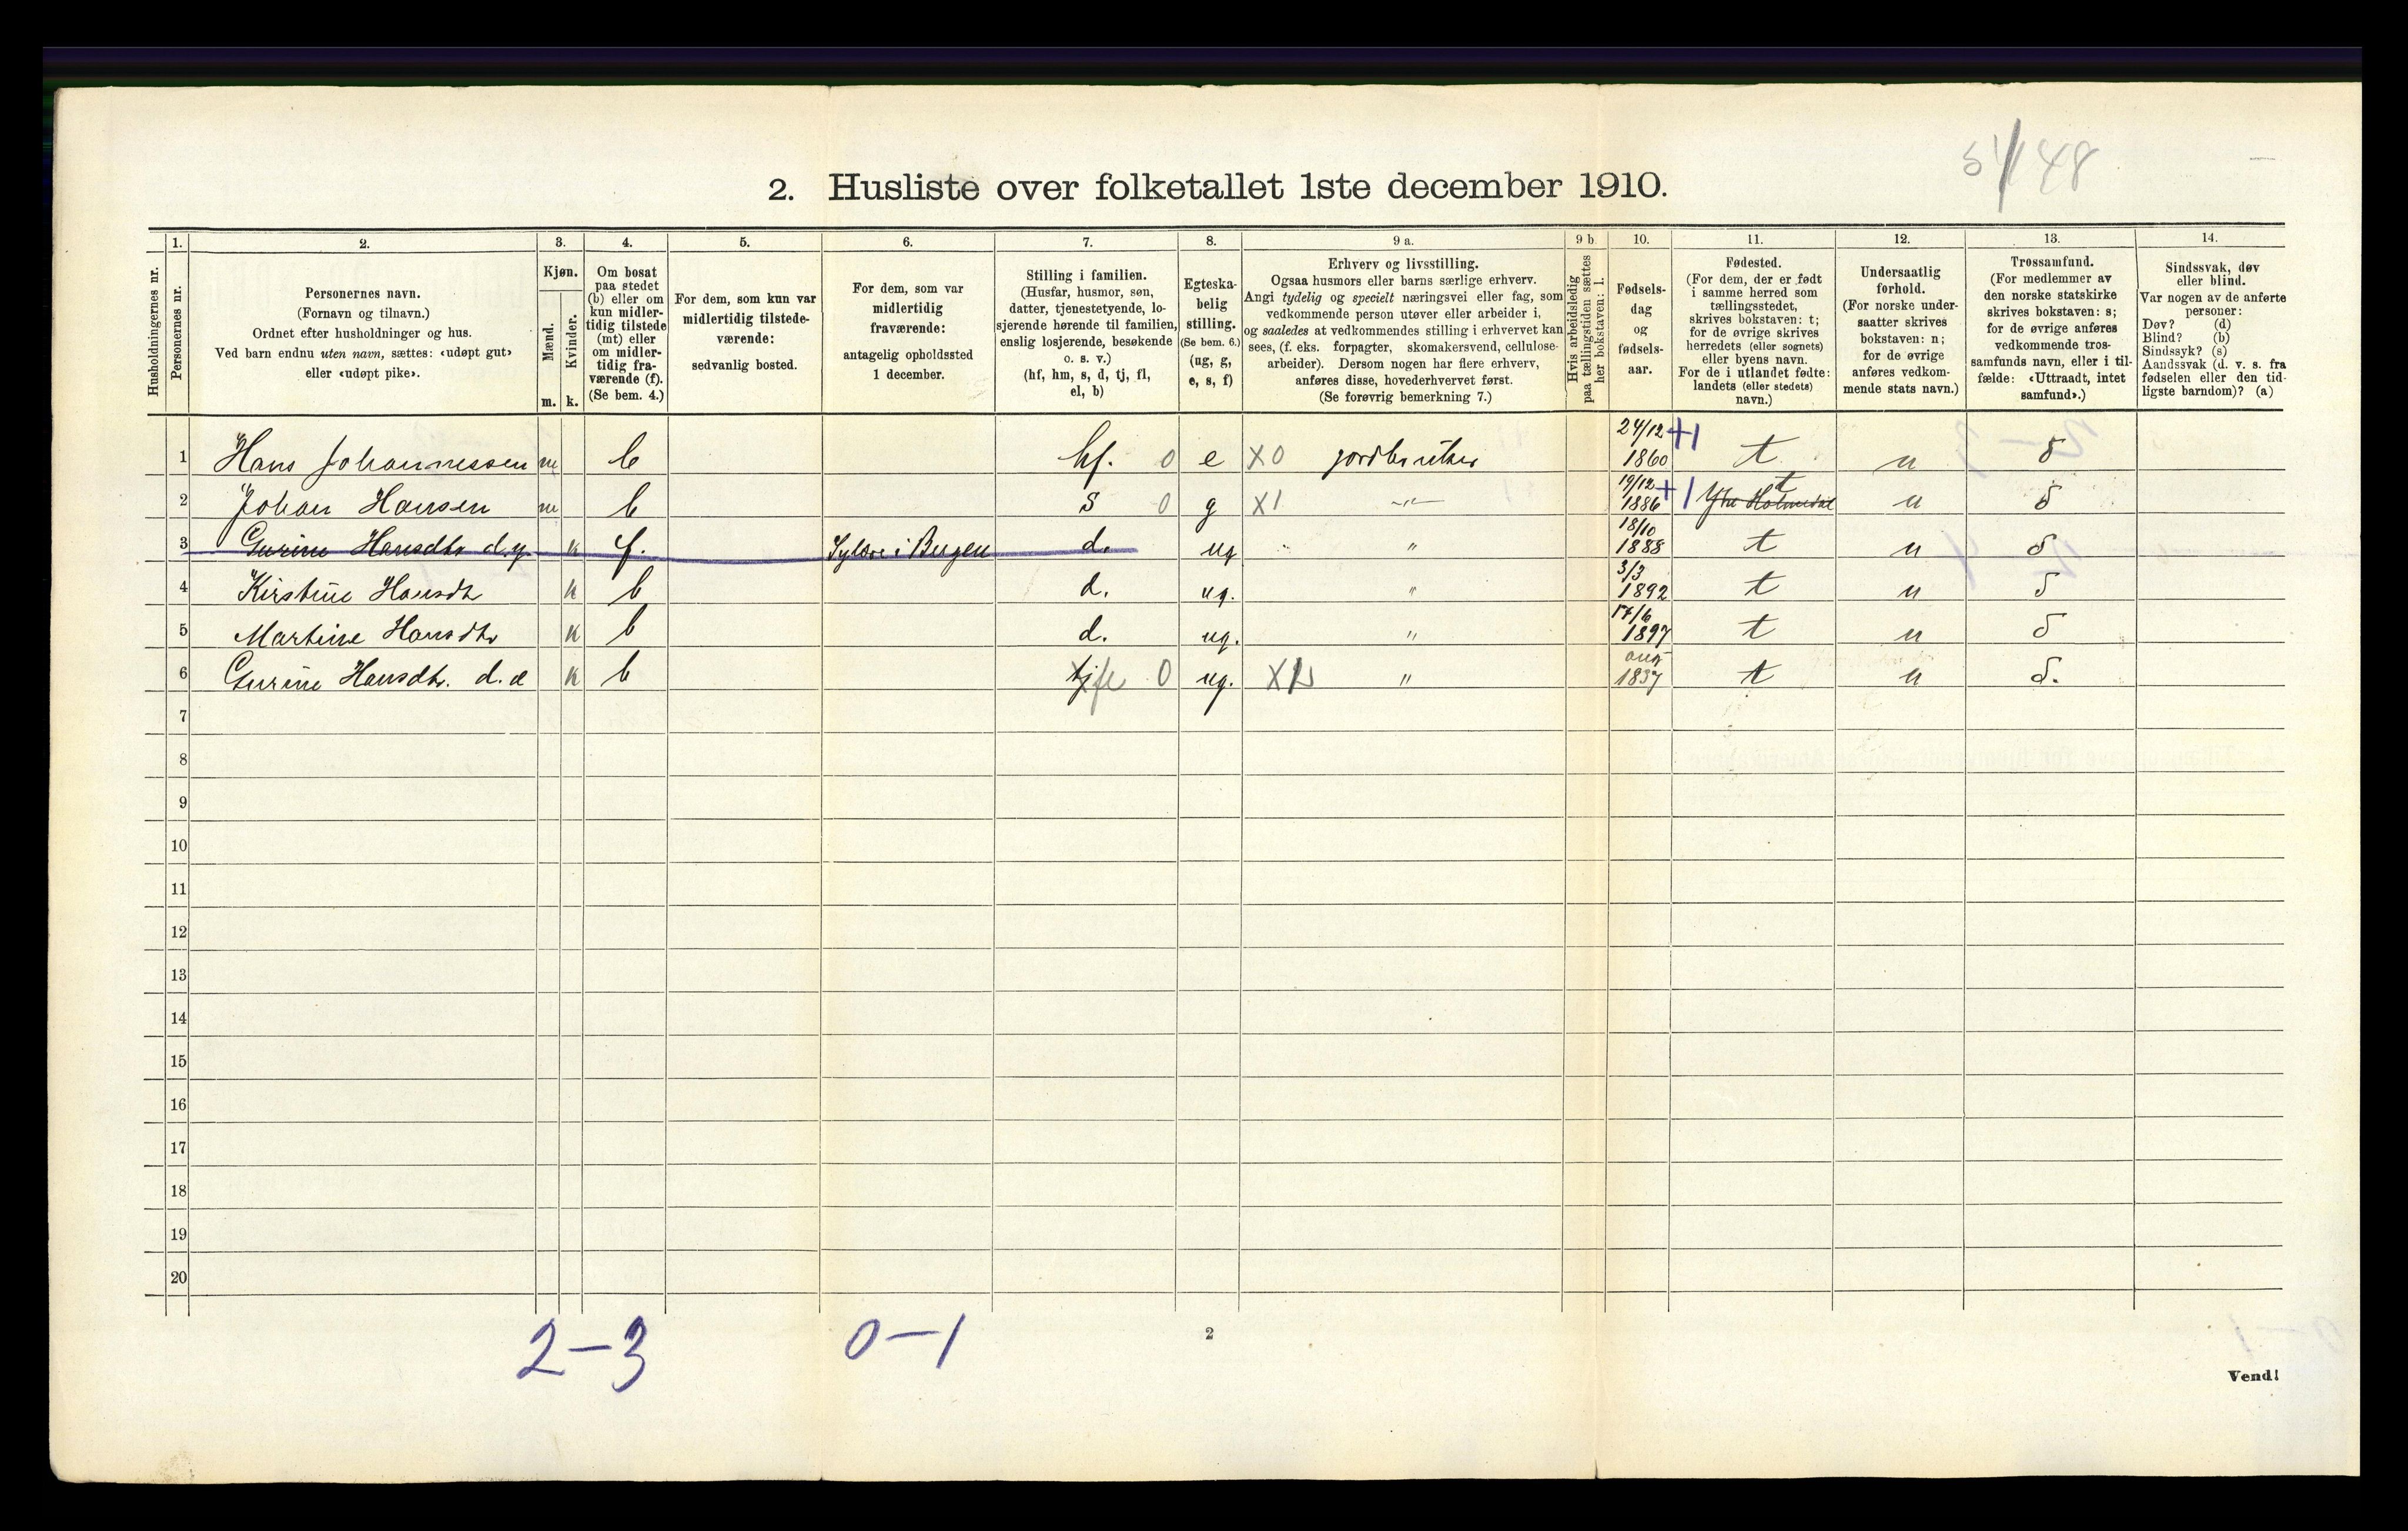 51/48
2. Husliste over folketallet 1ste december 1910.
Husholdningernes nr.
1.
Personernes nr.
2.
Personernes navn.
(Fornavn og tilnavn.)
Ordnet efter husholdninger og hus.
Ved barn endnu uten navn, sættes: «udøpt gut»
eller «udøpt pike».
3.
Kjøn.
Mænd.
Kvinder.
m. k.
4.
Om bosat
paa stedet
(b) eller om
kun midler-
tidig tilstede
(mt) eller
om midler-
tidig fra-
værende (f).
(Se bem. 4.)
5.
For dem, som kun var
midlertidig tilstede-
værende:
sedvanlig bosted.
6.
For dem, som var
midlertidig
fraværende:
antagelig opholdssted
1 december.
7.
Stilling i familien.
(Husfar, husmor, søn,
datter, tjenestetyende, lo-
sjerende hørende til familien,
enslig losjerende, besøkende
o. s. v.)
(hf, hm, s, d, tj, fl,
el, b)
8.
Egteska-
belig
stilling.
(Se bem. 6.)
(ug, g,
e, s, f)
9 a.
Erhverv og livsstilling.
Ogsaa husmors eller barns særlige erhverv.
Angi tydelig og specielt næringsvei eller fag, som
vedkommende person utøver eller arbeider i,
og saaledes at vedkommendes stilling i erhvervet kan
sees, (f. eks. forpagter, skomakersvend, cellulose-
arbeider). Dersom nogen har flere erhverv,
anføres disse, hovederhvervet først.
(Se forøvrig bemerkning 7.)
9 b
Hvis arbeidsledig
paa tællingstiden sættes
her bokstaven: l.
10.
Fødsels-
dag
og
fødsels-
aar.
11.
Fødested.
(For dem, der er født
i samme herred som
tællingsstedet,
skrives bokstaven: t;
for de øvrige skrives
herredets (eller sognets)
eller byens navn.
For de i utlandet fødte:
landets (eller stedets)
navn.)
12.
Undersaatlig
forhold.
(For norske under-
saatter skrives
bokstaven: n;
for de øvrige
anføres vedkom-
mende stats navn.)
13.
Trossamfund.
(For medlemmer av
den norske statskirke
skrives bokstaven: s;
for de øvrige anføres
vedkommende tros-
samfunds navn, eller i til-
fælde: «Uttraadt, intet
samfund».)
14.
Sindssvak, døv
eller blind.
Var nogen av de anførte
personer:
Døv? (d)
Blind? (b)
Sindssyk? (s)
Aandssvak (d. v. s. fra
fødselen eller den tid-
ligste barndom)? (a)
1 Hans Johannessen m b hf. 0 e X0 jordbruker 24/12 1860 +1 t n s
2 Johan Hansen m b s 0 g X1 -"- 19/12 1886 +1 Ytre Holmedal t n s
3 Gurine Hansdtr d.y. k f. Syldre i Bergen d. ug " 18/10 1888 t n s
4 Kirstine Hansdt k b d. ug. " 3/3 1892 t n s
5 Martine Hansdtr k b d. ug. " 17/6 1897 t n s
6 Gurine Hansdtr. d.æ k b tj fl 0 ug. " aug 1837 t n s.
7
8
9
10
11
12
13
14
15
16
17
18
19
20
2-3 0-1
2
Vend!